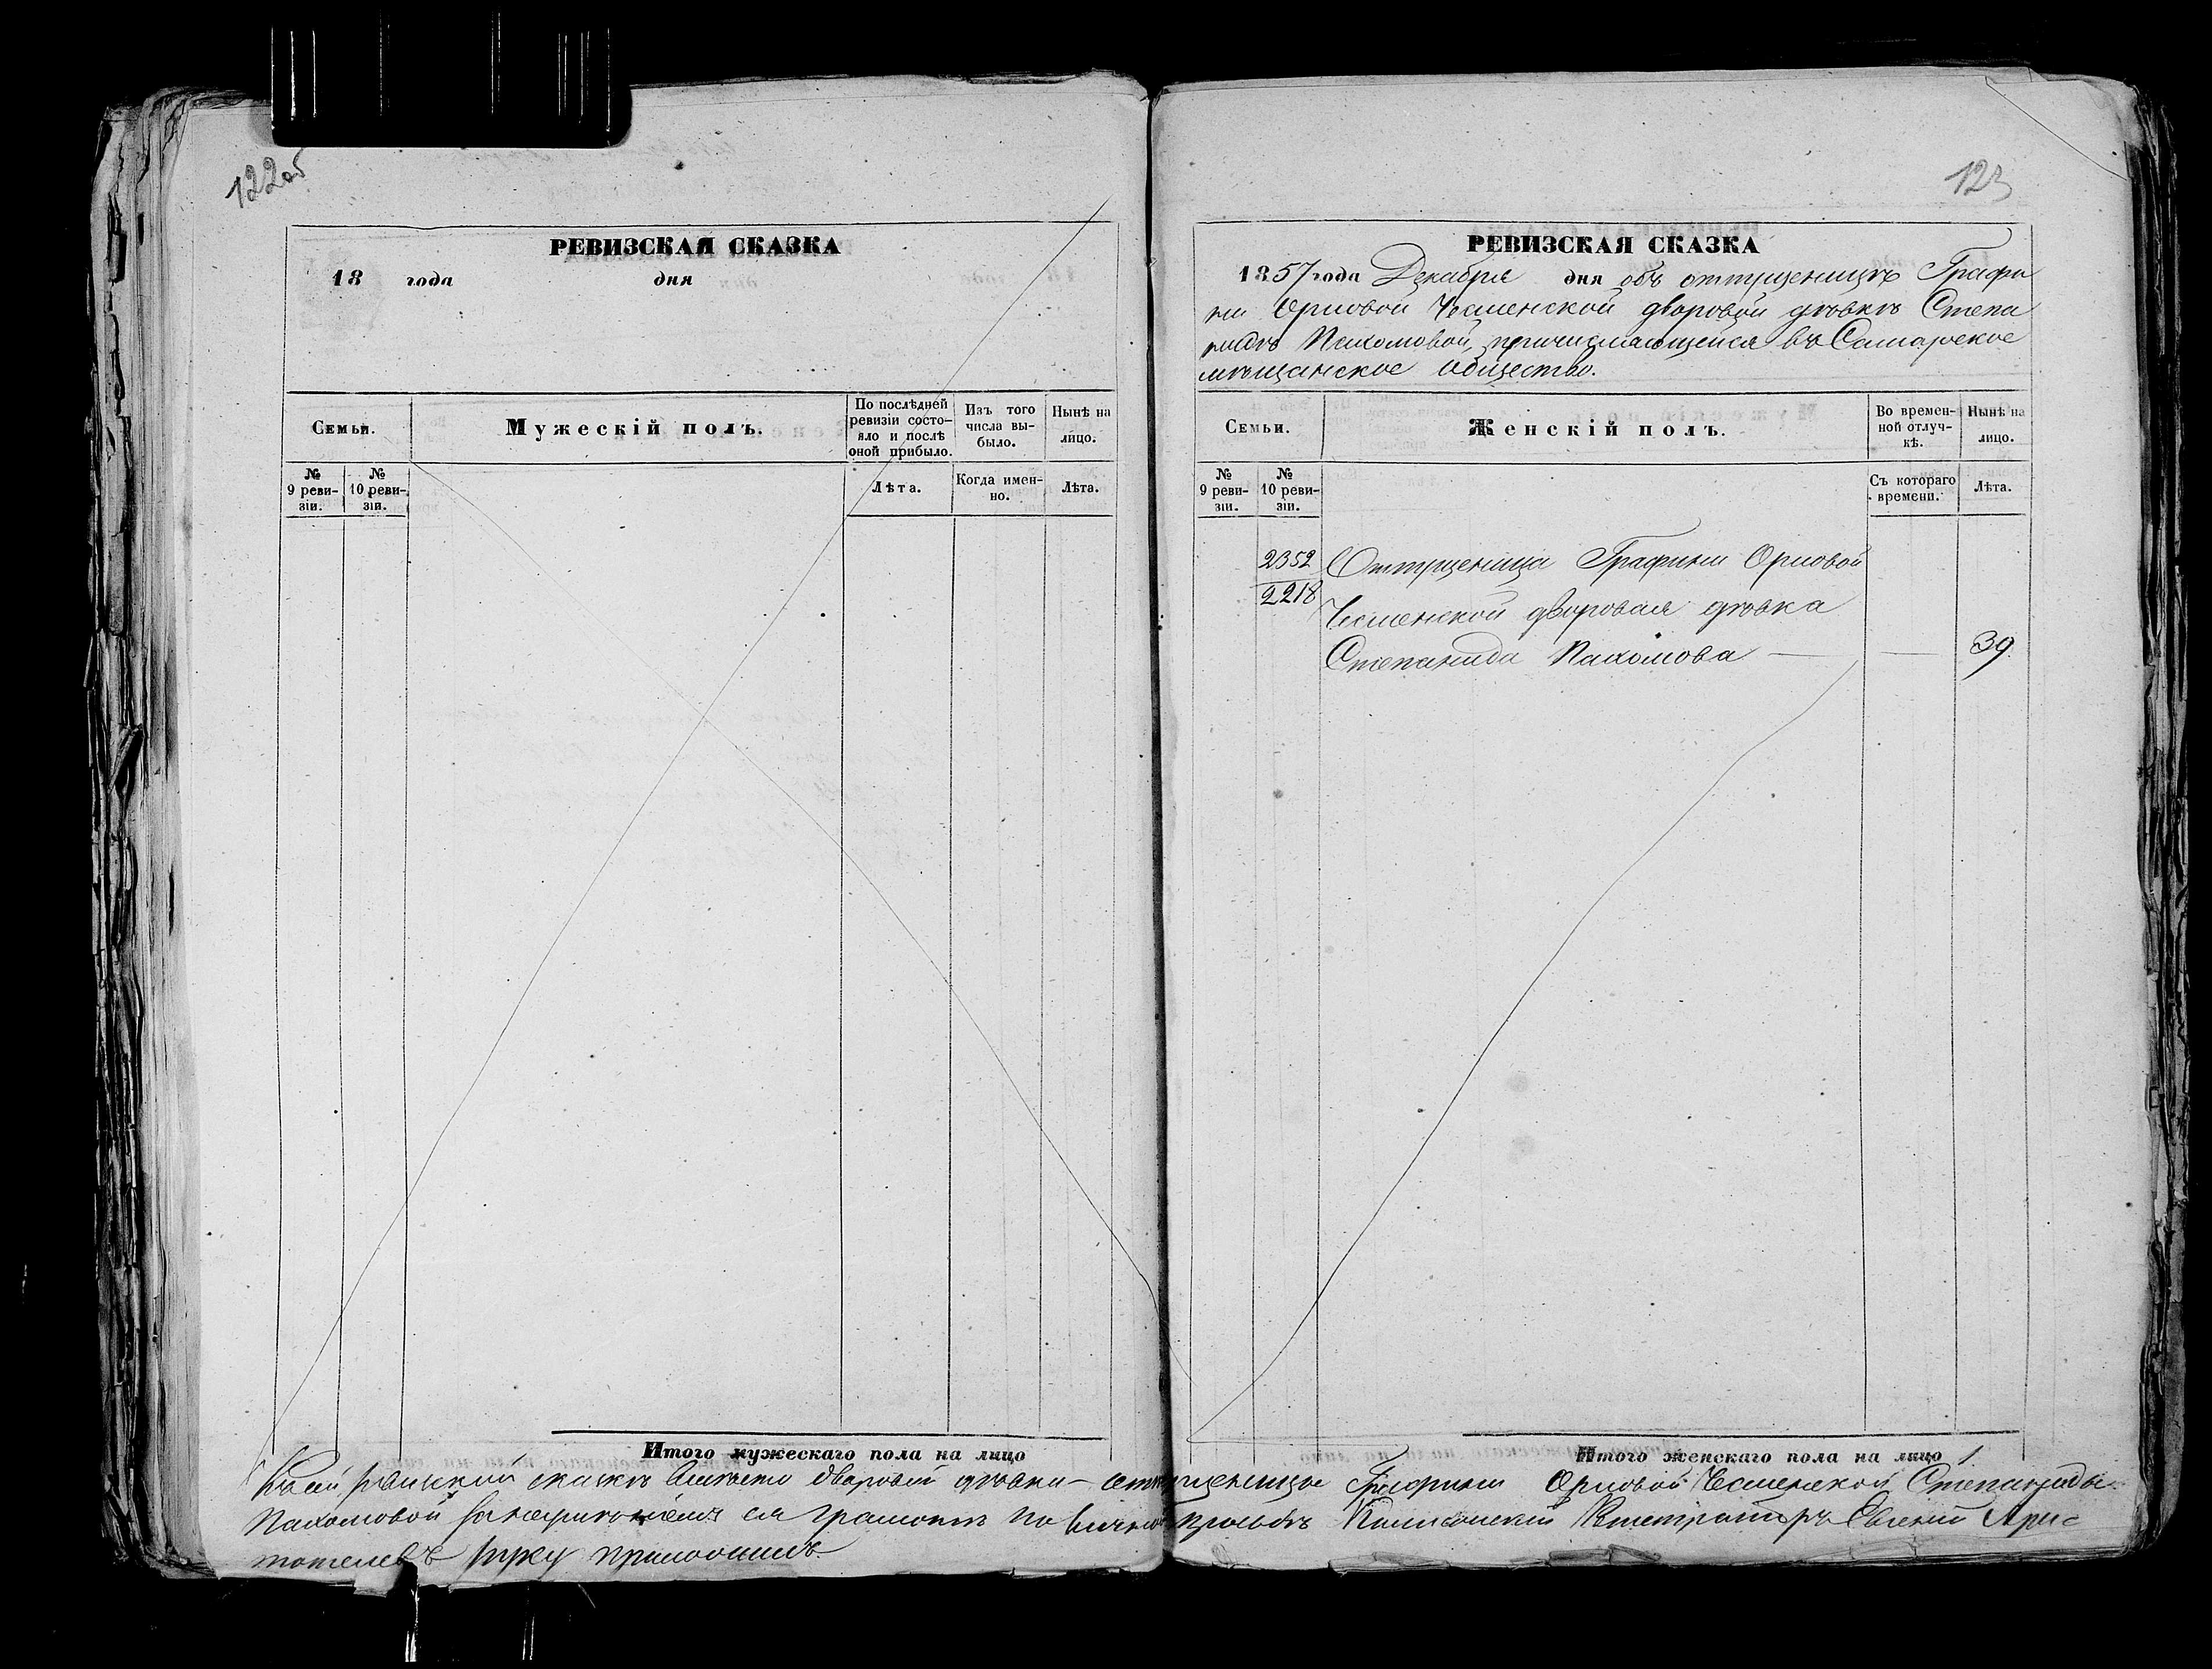 122об
РЕВИЗСКАЯ СКАЗКА
18 года дня
Семьи.
Мужескій полъ.
По послѣдней ревизіи состояло и послѣ оной прибыло.
Изъ того числа выбыло.
Нынѣ на лицо.
№ 9 ревизіи.
№ 10 ревизіи.
Лѣта.
Когда именно.
Лѣта.
Итого мужескаго пола на лицо
123
РЕВИЗСКАЯ СКАЗКА
1857 года Декабря дня объ отпущеницѣ Графи
ни Орловой Чесменской дворовой дѣвкѣ Степа
нидѣ Пахомовой, причисляющейся въ Самарское
мѣщанское общество.
Семьи.
Женскій полъ.
Во временной отлучкѣ.
Нынѣ на лицо.
№ 9 ревизіи.
№ 10 ревизіи.
Съ котораго времени.
Лѣта.
2352 Отпущеница Графини Орловой
2218 Чесменской дворовая дѣвка
Степанида Пахомова — — 39.
Итого женскаго пола на лицо 1
Къ сей ревизской сказкѣ вмѣсто дворовой дѣвки - отпущеницы Графини Орловой Чесменской Степаниды
Пахомовой за неумѣніемъ ея грамотѣ по личной просьбѣ Коллежскій Регистраторъ Евгеній Арис
тотелевъ руку приложилъ.